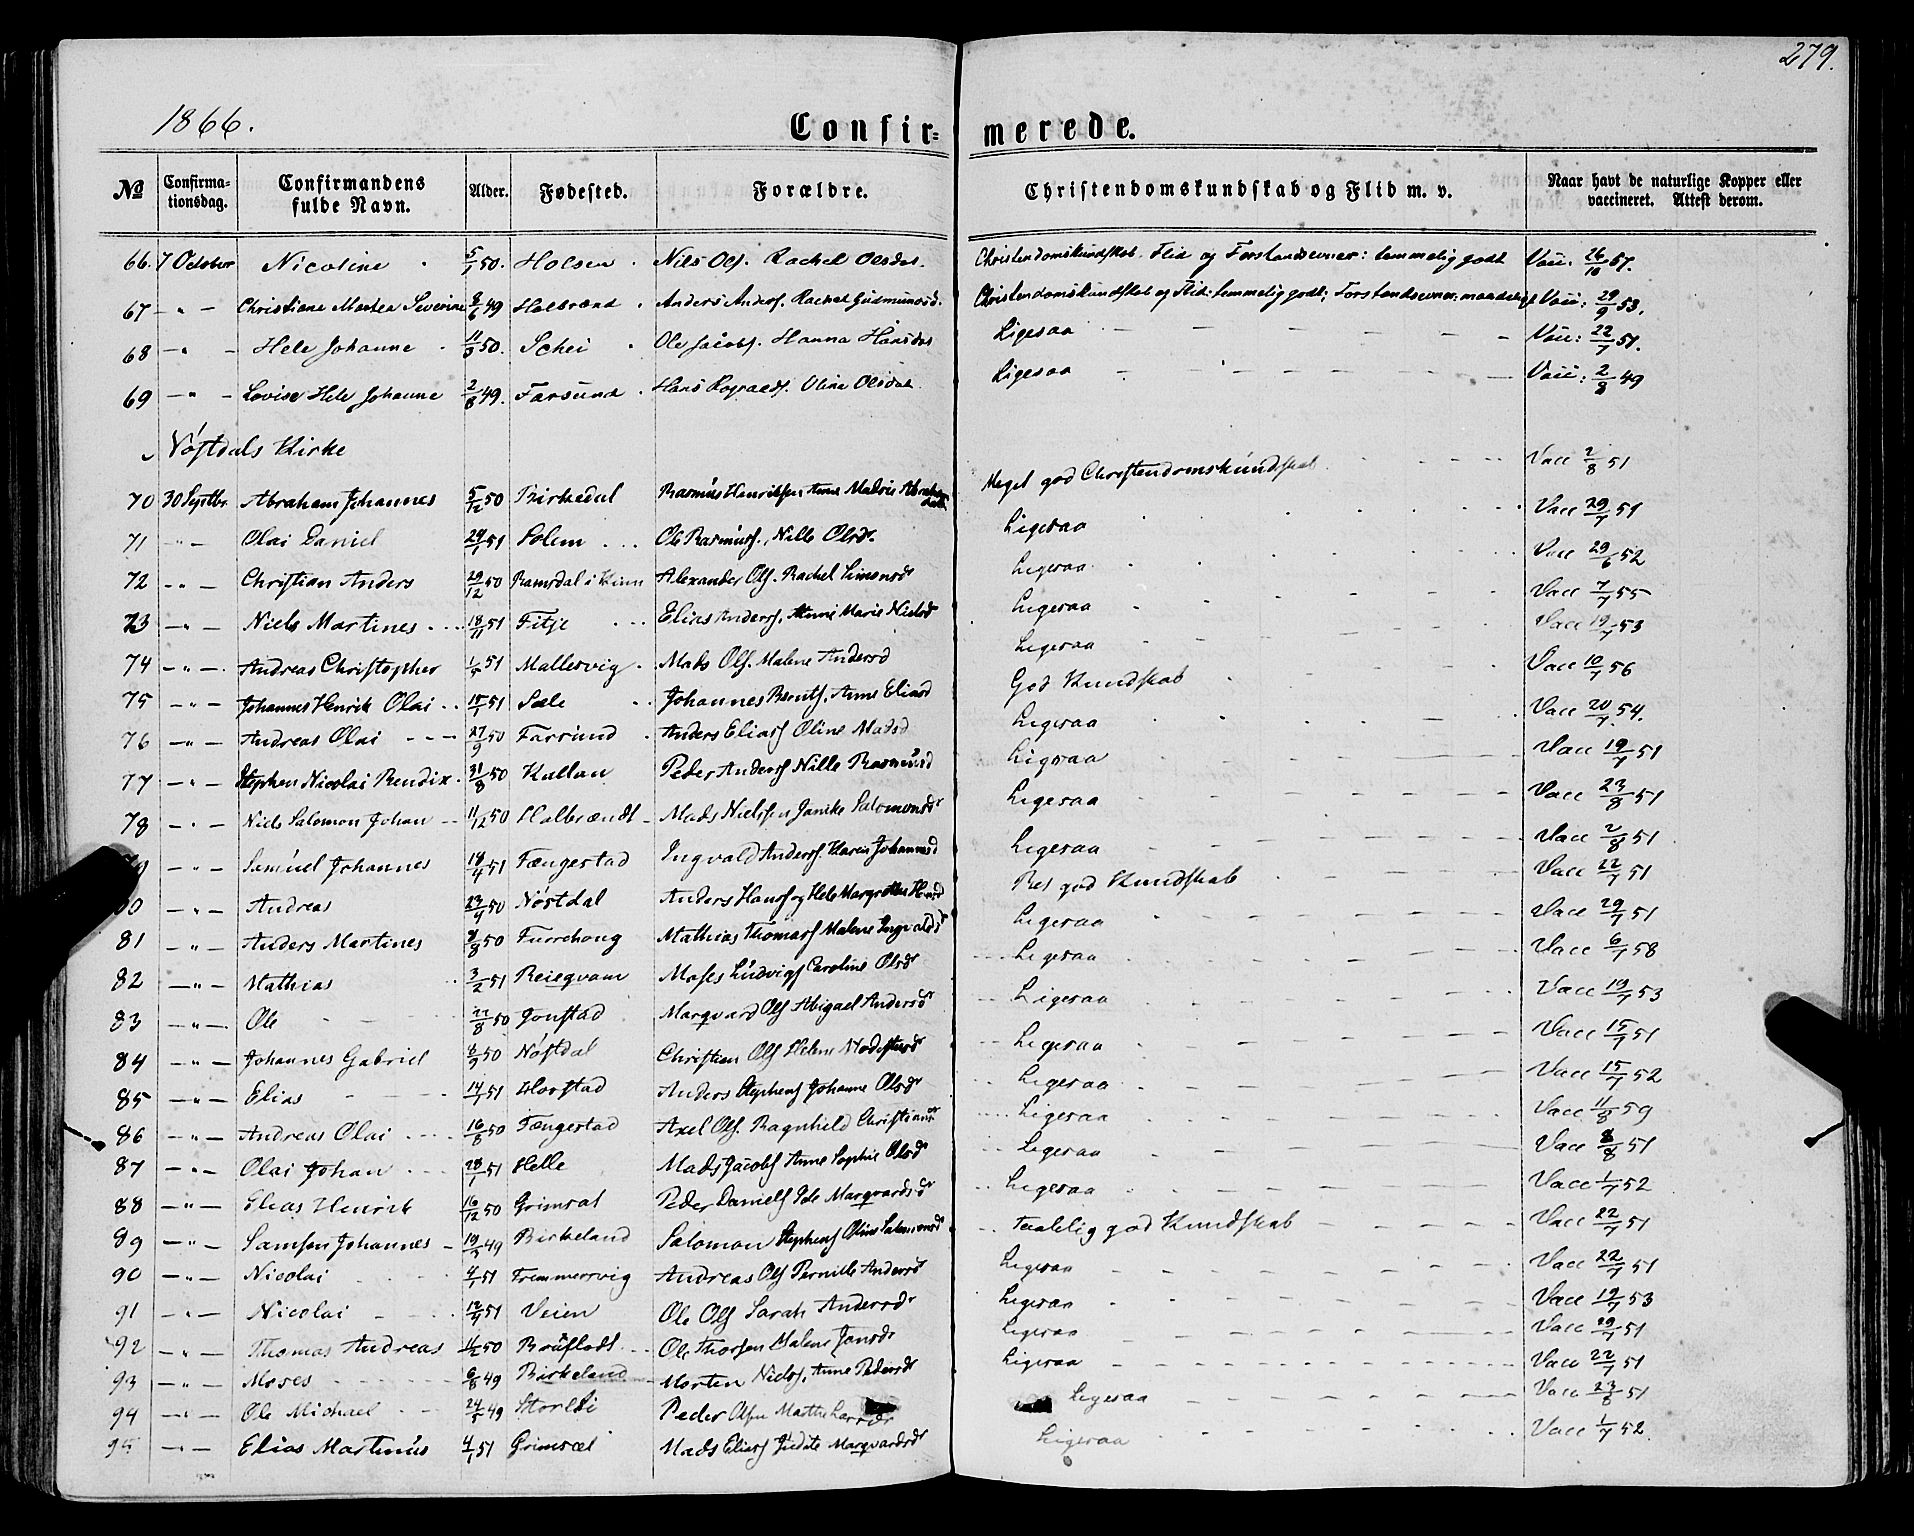 279.
1866.
Confir=merede.
№ Confirma-tionsdag. Confirmandens fulde Navn. Alder. Fødested. Forældre. Christendomskundskab og Flid m. v. Naar havt de naturlige Kopper eller vaccineret. Attest derom.
66. 7 October Nicoline 5/1 50. Holsen Nils Ols. Rachel Olsdat. Christendomskundskab, Flid og Forstandsevner: temmelig godt Vaic: 26/10 57.
67 - " - Christiane Marthea Severine 49 Halbrænd Anders Anders. Rachel Gudmundsd. Christendomskundskab og Flid: temmelig godt; Forstandsevner: maadeligt Vaic: 29/9 53.
68 - " - Hele Johanne 50. Schei Ole Jacobs. Hanna Hansdat Ligesaa Vaic: 22/7 51.
69 - " - Lovise Hele Johanne 2/8 49. Farsund Hans Oline Olsdat Ligesaa Vaic: 2/8 49
Nøstdals Kirke
70 30 Septbr. Abraham Johannes 5/12 50 Birkedal Rasmus Henriksen Anne Malvie Meget god Christendomskundskab Vacc 2/8 51
71 - " - Olai Daniel 51 Solem Ole Rasmus., Nille Olsdr. Ligesaa Vacc 29/7 51
72 - " - Christian Anders 29/12 50 Ramsdal i Kinn Alexander Ols. Rachel Simonsdr Ligesaa Vacc 29/6 52
73 - " - Niels Martines 18/11 51 Fitje Elias Anders. Anne Marie Nielsd Ligesaa Vacc 7/7 55
74 - " - Andreas Christopher 51 Mallesvig Mads Ols. Malene Andersd Ligesaa Vacc 19/7 53
75 - " - Johannes Henrik Olai 51 Sæle Johannes Bents. Anne Eliasd God Kundskab Vacc 10/7 56
76 - " - Andreas Olai 27/9 50 Farsund Anders Elias Oline Madsd Ligesaa Vacc 20/7 54.
77 - " - Stephen Nicolai Bendix 31/8 50 Kallan Peder Anders Nille Rasmusd Ligesaa Vacc 19/7 51
78 - " - Niels Salomon Johan 11/12 50 Halbrændt Mads Nielsen Janike Salomonsdr Ligesaa Vacc 23/8 51
- " - Samuel Johannes 18/4 51 Fængestad Ingvald Anders. Karen Johannesd Ligesaa Vacc 2/8 51
- " - Andreas 50 Nøstdal Anders Hans og Hele Margrethe Hansd Bes god Kundskab Vacc 22/7 51
81 - " - Anders Martines 50 Furrehoug Mathias Thomas Malene Ingvaldsdr Ligesaa Vacc 29/7 51
82 - " - Mathias 3/2 51 Reiegvam Moses Ludvigs Caroline Olsdr Ligesaa Vacc 6/7 58
83 - " - Ole 22/8 50 Jonstad Marqvard Ols Abigael Andersdr Ligesaa Vacc 19/7 53
84 - " - Johannes Gabriel 50 Nøstdal Christian Ols Helene Ligesaa Vacc 15/7 51
85 - " - Elias 14/1 51 Horstad Anders Stephens Johanne Olsdr Ligesaa Vacc 15/7 52
86 - " - Andreas Olai 16/8 50 Fængestad Axel Ols. Ragnhild Christiansdr Ligesaa Vacc 11/8 59
87 - " - Olai Johan 28/1 51 Helle Mads Jacobs Anne Sophie Olsdr Ligesaa Vacc 8/8 51
88 - " - Elias Henrik 16/12 50 Grimsæt Peder Daniels Ide Marqvardsdr Ligesaa Vacc 1/7 52
89 - " - Samson Johannes 49 Birkeland Salomon Stephens Oline Salomonsdr Taalelig god Kundskab Vacc 22/7 51
90 - " - Nicolai 4/1 51 Fremmersvig Andreas Ols Pernille Andersdr Ligesaa Vacc 22/7 51
91 - " - Nicolai 51 Veien Ole Ols Sarah Andersdr Ligesaa Vacc 19/7 53
92 - " - Thomas Andreas 50 Ole Thorsen Malene Jonsdr Ligesaa Vacc 29/7 51
93 - " - Moses 6/8 49 Birkeland Morten Niels. Anne Pedersdr Ligesaa Vacc 22/7 51
94 - " - Ole Michael 49 Storlii Peder Olsen Marthe Larsdr Ligesaa Vacc 23/8 51
95 - " - Elias Martinus 4/1 51 Grimsæt Mads Elias Judite Marqvardsdr Ligesaa Vacc 1/7 52